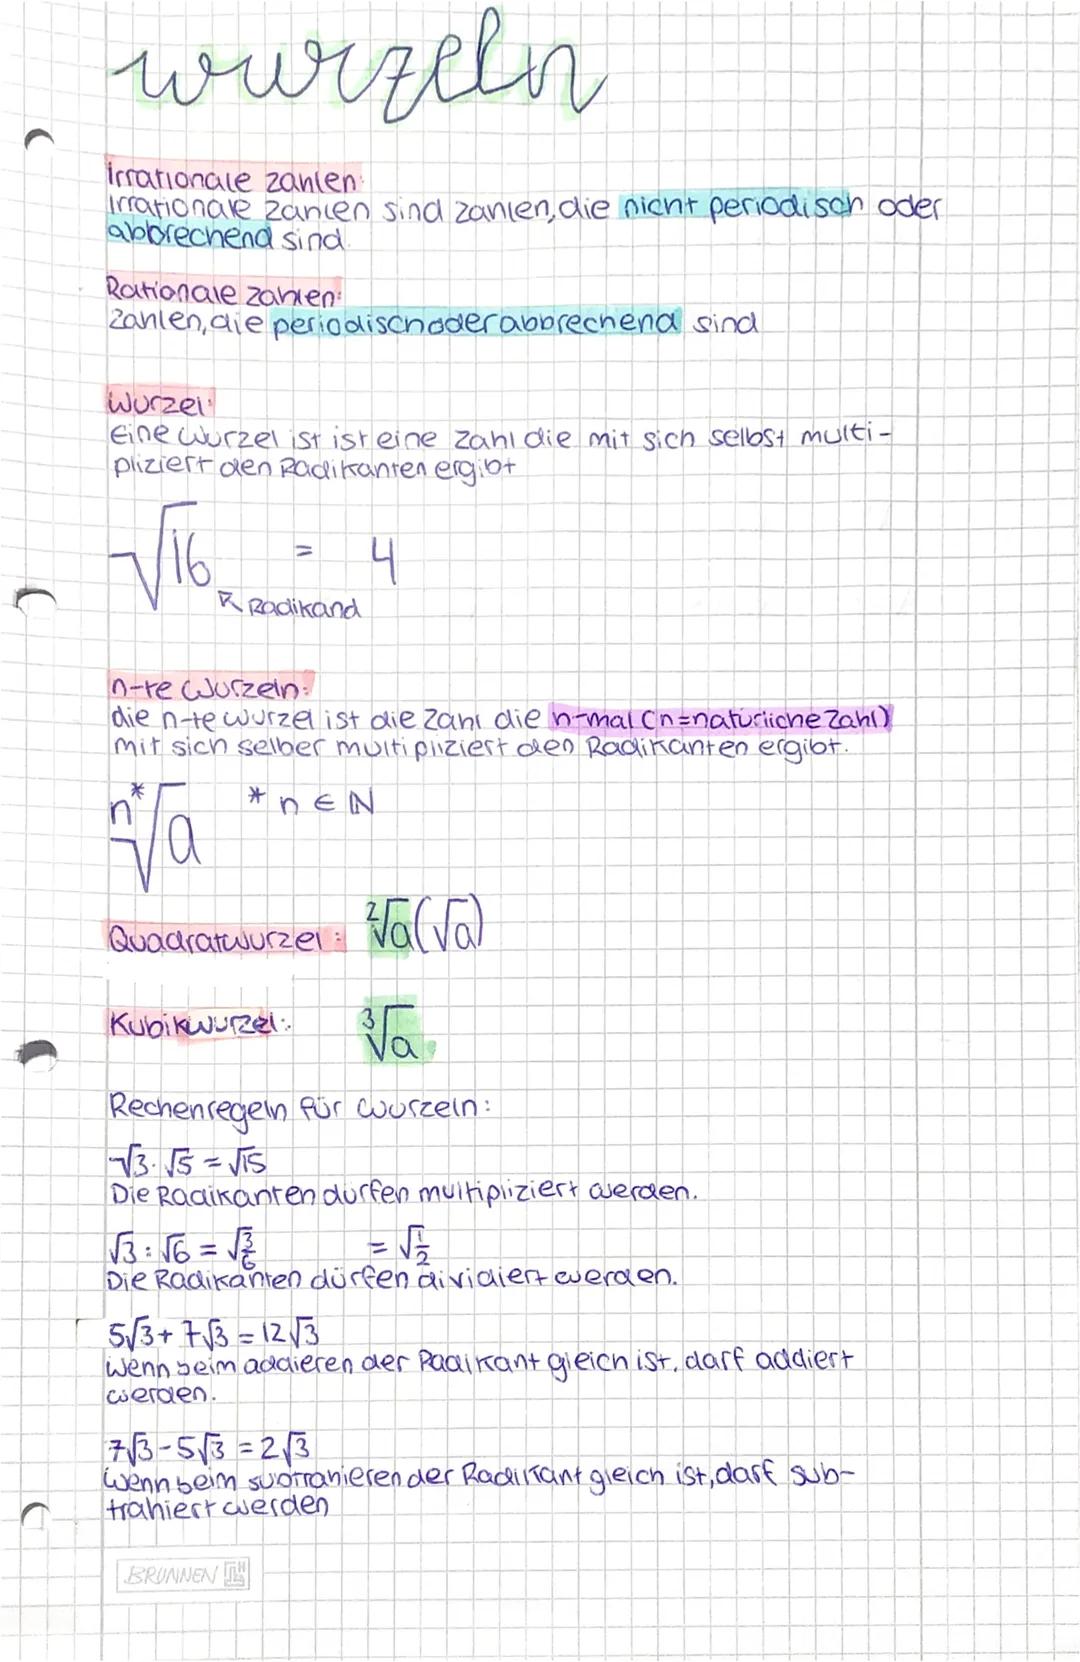 wurzeln
Irrationale Zahlen:
Irrationale Zahlen sind Zahlen, die nicht periodisch oder
abbrechend sind.
Rationale Zahlen:
Zahlen, die periodisch oder abbrechend sind
Wurzel:
Eine Wurzel ist ist eine Zahl die mit sich selbst multi-
pliziert den Radikanten ergibt
√16 = 4
↖ Radikand
n-te Wurzeln:
die n-te Wurzel ist die Zahl die n-mal (n=natürliche Zahl)
mit sich selber multipliziert den Radikanten ergibt.
n*√a * n ∈ ℕ
Quadratwurzel: ²√a (√a)
Kubikwurzel: ³√a
Rechenregeln für Wurzeln:
√3 · √5 = √15
Die Radikanten dürfen multipliziert werden.
√3 : √6 = √3/6 = √1/2
Die Radikanten dürfen dividiert werden.
5√3 + 7√3 = 12√3
Wenn beim addieren der Radikant gleich ist, darf addiert
werden.
7√3 - 5√3 = 2√3
Wenn beim subtrahieren der Radikant gleich ist, darf sub-
trahiert werden
BRUNNEN